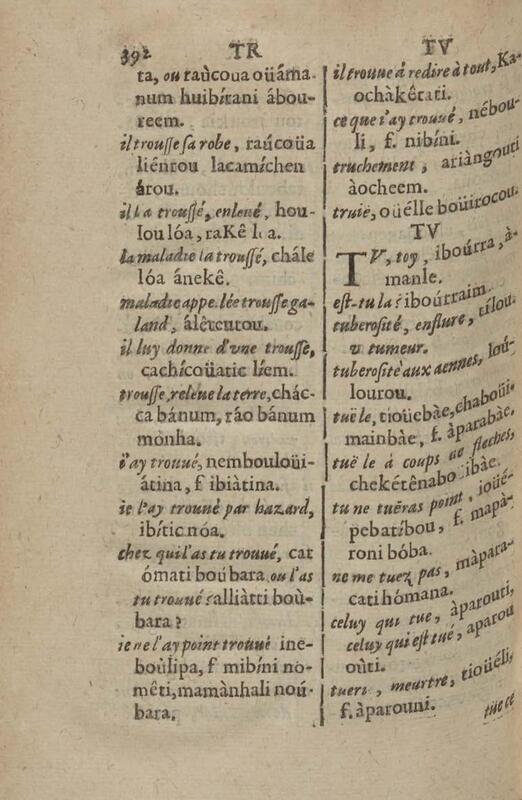 392
TR
ta, ou taùcoua oüáma-
num huibíꞇani ábou-
reem.
il trousse sa robe, raúcoüa
liénrou lacamíchen
árou.
il l'a troussé, enlevé, hou-
lou lóa, raKê la.
la maladie la troussé, chále
lóa ánekê.
maladie appellée trousse ga-
land, álêtcutou.
il luy donne d'vne trousse,
cachícoüatic líem.
trousse, releue la terre, chác-
ca bánum, ráo bánum
mònha.
i'ay trouué, nembouloüi-
átina, f ibiàtina.
ie l'ay trouué par hazard,
ibític nóa.
chez qui l'as tu trouué, cat
ómati boúbara ou l'as
tu trouué? alliàtti boù-
bara?
ie ne l'ay point trouué ine-
boùlipa, f mibíni no-
mêti, mamànhali noú-
bara.
TV
il trouue à redire à tout, Ka-
ochàkêtati.
ce que i'ay trouué, nébou-
li, f. nibíni.
truchement, ariàngouti
àocheem.
truie, oüélle boüirocou.
TV
TV, toy, iboúrra, à-
manle.
est-tu la? iboúrraim.
tuberosité, enflure, tílou-
v tumeur.
tuberosité aux aennes, loú-
lourou.
tuë le, tioüebàe, chaboüi-
mainbàe, f. àparabàe.
tuë le à coups de fleches,
chekétênabo ibàe.
tu ne tuëras point, ioüé-
pebatíbou, f. mapà-
roni bóba.
ne me tuez pas, màpara-
catihómana.
celuy qui tue, àparouti,
celuy qui est tué, aparou
oùti.
tuerï, meurtre, tioüéli,
f. àparouni.
tüe cé